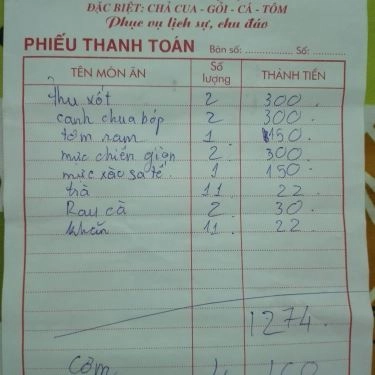 ĐẶC BIỆT: CHẢ CUA - GỎI - CÁ - TÔM
Phục vụ lịch sự, chu đáo
PHIẾU THANH TOÁN Bàn số: Số:
TÊN MÓN ĂN Số lượng THÀNH TIỀN
thu xốt 2 300
canh chua bóp 2 300
tôm ram 1 150
mực chiên giòn 2 300
mực xào sa tế 1 150
trà 11 22
Rau cà 2 30
khăn 11 22
1274
Cơm